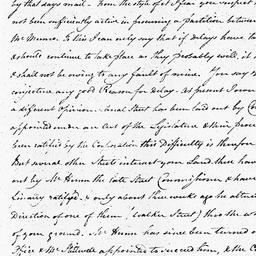 by that says mail. From the style of it I fear you suspect I
not been sufficiently active in procuring a partition between
Mr Munro. To this I can only say that if delays have ta
& should continue to take place as they probably will, it
& shall not be owing to any fault of mine. You say
conjecture any good Reason for delay. At present I own
a different Opinion. Canal Street has been laid out by Co
appointed under an Act of the Legislature & their proce
been ratified by the Corporation this Difficulty is therefore
But several other Streets intersect your Land. these have
out by Mr Hunn the late Street Commissioner & have
binary ratifyed. & only about three weeks ago he altered
Direction of one of them (Walker Street) thro the w
of your ground. Mr Hunn has since been turned o
Office & Mr appointed to succeed him, & the C